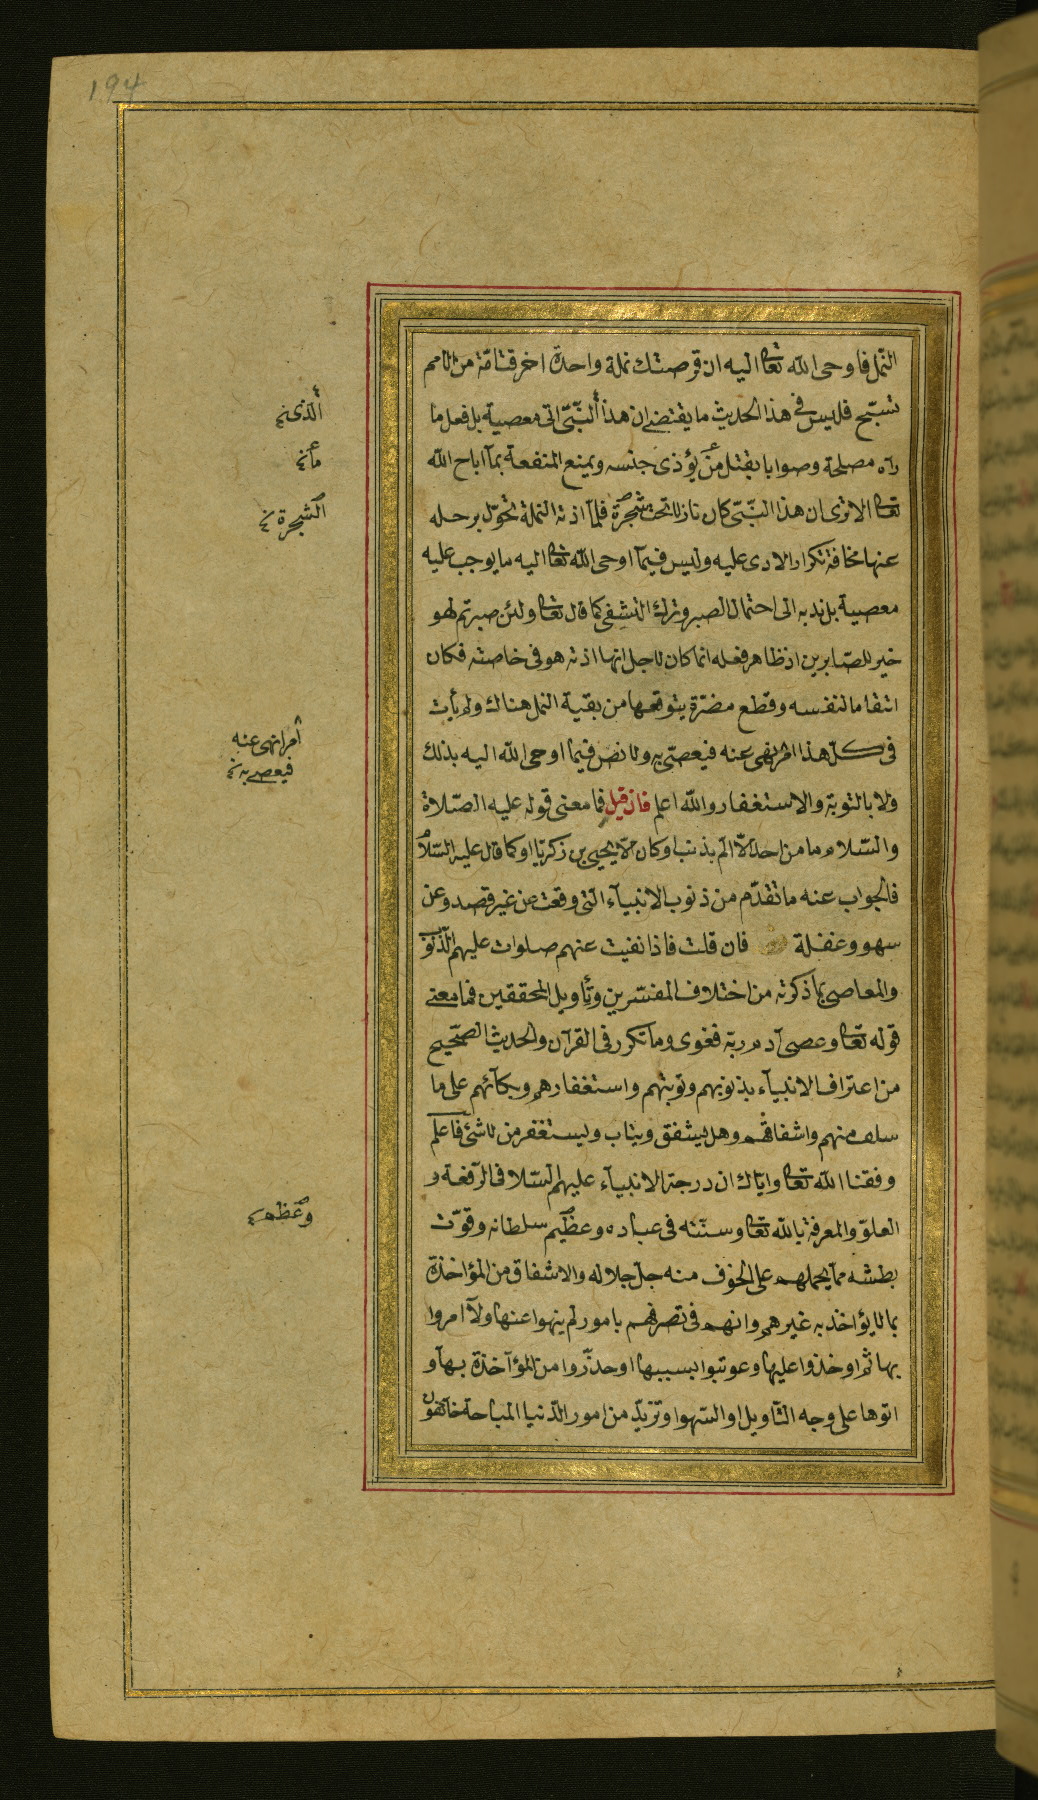 194
النّمل فاوحى الله تعا اليه ان قرصتك نملة واحدة احرقت امّة من الامم
تسبّح فليس فى هذا الحديث ما يقتضى ان هذا النّبىّ اتى معصية بل فعل ما
رآه مصلحة وصوابا بقتل من يؤذى جنسه ويمنع المنفعة بمآ اباح الله
تعا الا ترى ان هذا النّبىّ كان نازلا تحت شجرة فلمّآ اذته النملة تحوّل برحله
عنها مخافة تكرار الاذى عليه وليس فيمآ اوحى الله تعا اليه ما يوجب عليه
معصية بل ندبه الى احتمال الصبر وترك التشفى كما قال تعا ولئن صبرتم لهو
خير للصّابرين اذ ظاهر فعله انما كان لاجل انها اذته هو فى خاصته فكان
انتقاما لنفسه وقطع مضرّة يتوقعها من بقية النمل هناك ولم يأت
فى كلّ هذا امر نهى عنه فيعصّى به ولا نص فيما اوحى الله اليه بذلك
ولا بالتوبة والاستغفار والله اعلم فان قيل فما معنى قوله عليه الصّلاة
والسّلام ما من احد الّا الم بذنب او كاد الّا يحيى بن زكريّا او كما قال عليه السّلام
فالجواب عنه ما تقدّم من ذنوب الانبيآء التى وقعت عن غير قصد وعن
سهو وغفلة فان قلت فاذا نفيت عنهم صلوات عليهم الذّنوب
والمعاصى بما ذكرته من اختلاف المفسّرين وتأويل المحققين فما معنى
قوله تعا وعصى آدم ربّه فغوى وما تكرر فى القرآن والحديث الصّحيح
من اعتراف الانبيآء بذنوبهم وتوبتهم واستغفارهم وبكآئهم على ما
سلف منهم واشفاقهم وهل يشفق ويتاب ويستغفر من لا شئ فاعلم
وفقنا الله تعا وايّاك ان درجة الانبيآء عليهم السّلا فى الرّفعة و
العلوّ والمعرفة بالله تعا وسنّته فى عباده وعظيم سلطانه وقوّت
بطشه ممّا يحملهم على الخوف منه جلّ جلاله والاشفاق من المؤاخذة
بما لا يؤاخذ به غيرهم وانهم فى تصرفهم بامور لم ينهوا عنها ولآ امروا
بها ثم اوخذوا عليها وعوتبوا بسببها او حذّروا من المؤآخذة بهآ و
اتوها على وجه التّاويل او السّهو او تزيّد من امور الدّنيا المباحة خآئفون
ألذى نخ
ما نخ
الشجرة نخ
أمرا نهى عنه
فيعصى به نخ
وعظم نخ